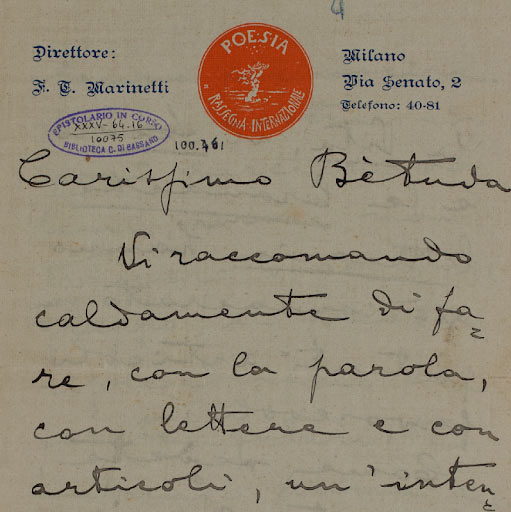 Direttore:
F. T. Marinetti
POESIA
RASSEGNA INTERNAZIONALE
Milano
Via Senato, 2
Telefono: 40-81
EPISTOLARIO IN CORSO
XXXV-64-16
10075
BIBLIOTECA C. DI BASSANO
Carissimo Bètuda
Vi raccomando
caldamente di fa=
re, con la parola,
con lettere e con
articoli, un'inten=